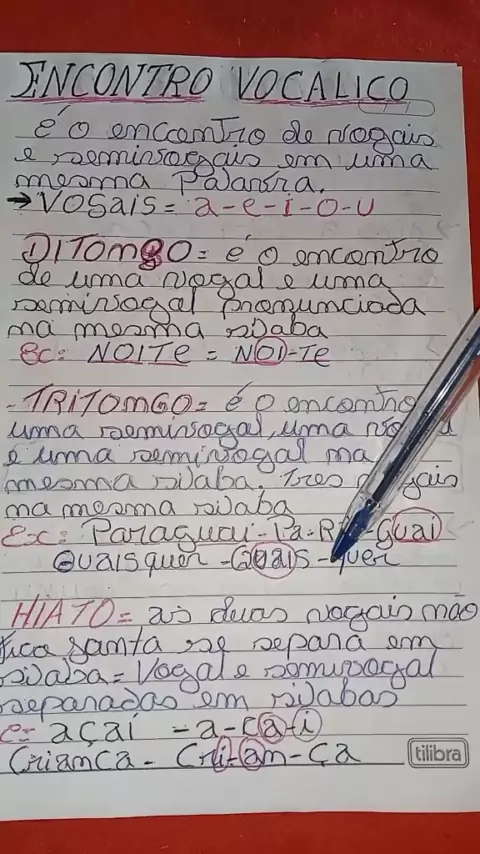 ENCONTRO VOCALICO
é o encontro de vogais
e semivogais em uma
mesma Palavra.
→ VOGAIS = a-e-i-o-u
DITOMGO = é o encontro
de uma vogal e uma
semivogal pronunciada
na mesma silaba
Ec: NOITe = NOI-Te
- TRITOMGO = é o encontro
uma semivogal, uma
e uma semivogal na
mesma silaba. Tres
na mesma silaba
Ex: Paraguai - Pa-R -guai
Quaisquer - Quais - quer
HIATO = as duas vogais não
fica junta se separa em
silaba = Vogal e semivogal
separadas em silabas
e= açaí - a-ça-i
Criança - Cri-an-ça
tilibra